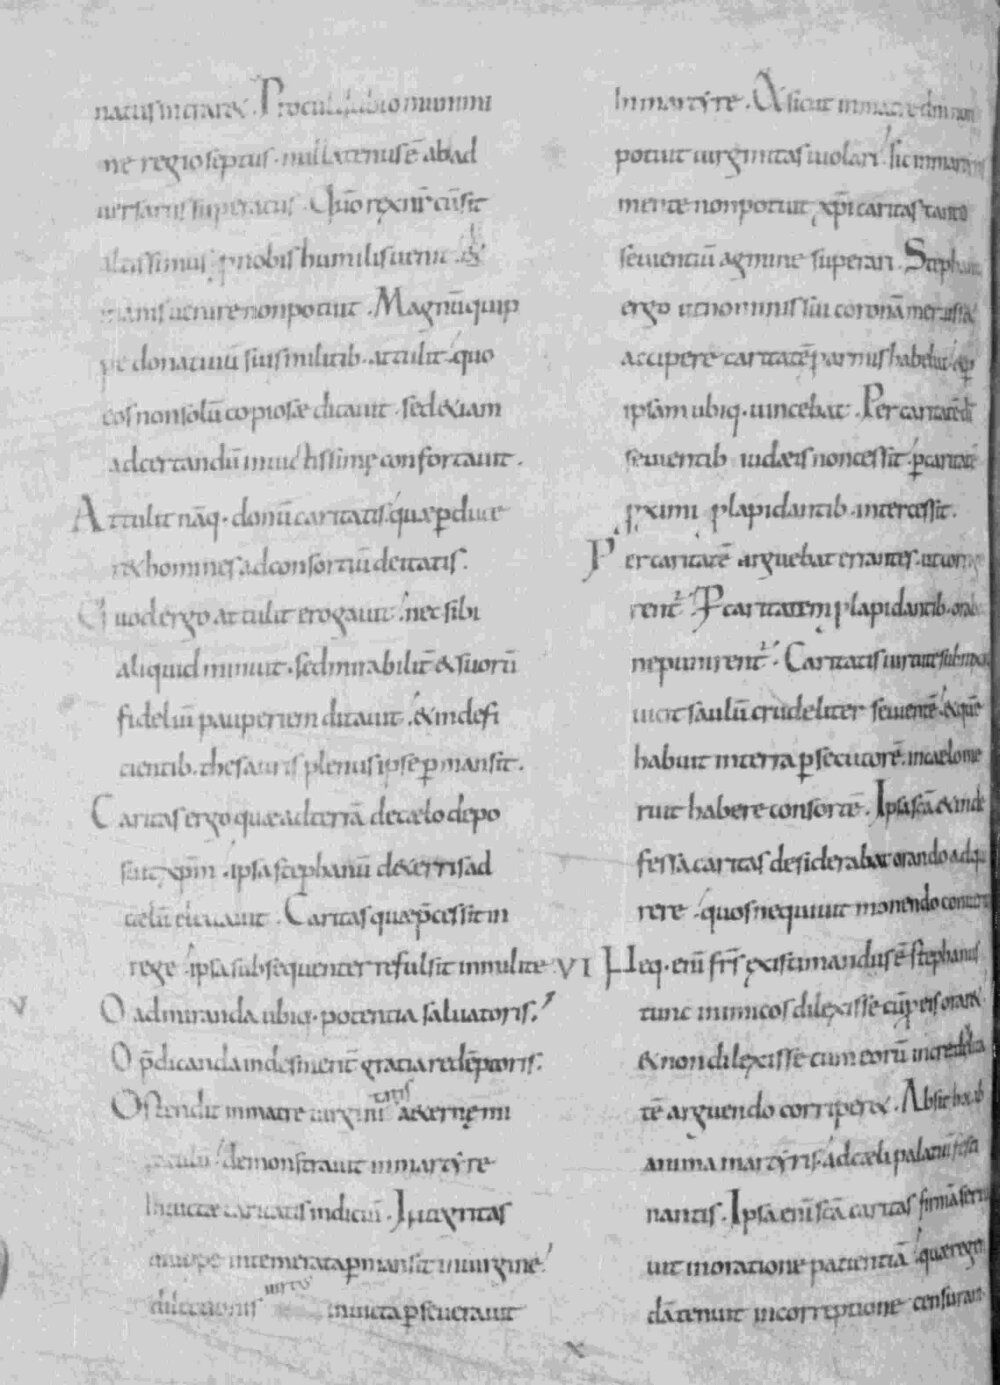 natus intraret. Procul dubio munimi
ne regio septus. nullatenus ē ab ad
uersariis superatus. Quō rex nr̄ cū sit
altissimus ꝓ nobis humilis uenit. &
inanis uenire non potuit. Magnū quip
pe donatiuū suis militib. attulit. quo
eos non solū copiosæ ditauit. sed &iam
ad certandū inuictissimę confortauit.
Attulit nāq. donū caritatis. quæ ꝑduce
r& homines ad consortiū deitatis.
Quod ergo attulit erogauit. nec sibi
aliquid minuit. sed mirabilit̄ & suorū
fideliū pauperiem ditauit. & indefi
cientib. thesauris plenus ipse ꝑmansit.
Caritas ergo quæ ad terrā de cælo depo
suit xp̄m. ipsa stephanū de terris ad
cælū eleuauit. Caritas quæ p̄cessit in
rege. ipsa subsequenter refulsit in milite
O admiranda ubiq. potentia saluatoris.
O p̄dicanda indesinent̄ gratia redēptoris.
Ostendit in matre uirginitatis æternę mi
raculū. demonstrauit in martẏre
Inuictæ caritatis indiciū. Integritas
quippe intemerata ꝑmansit in uirgine.
dilectionis uirtus inuicta ꝑseuerauit
In martẏre. Et sicut in matre dn̄i non
potuit uirginitas uiolari. sic in martiris
mente non potuit xp̄i caritas tanto
seuientiū agmine superari. Stephanus
ergo ut nominis sui coronā meruisset
accipere caritatē ꝓ armis habebat. & ꝑ
ipsam ubiq. uincebat. Per caritatē dī
seuientib iudæis non cessit. ꝑ caritatē
ꝓximi ꝓ lapidantib. intercessit.
Per caritatē arguebat errantes. ut corrige
rent̄. Ꝑ caritatem ꝓ lapidantib. orabat
ne punirent̄. Caritatis uirtute submixus
uicit saulū crudeliter seuientē. & quē
habuit in terra ꝑsecutorē. in cælo me
ruit habere consortē. Ipsa sc̄a & inde
fessa caritas desiderabat orando adqui
rere. quos nequiuit monendo conuertere
VI Neq. enī fr̄s existimandus ē stephanus
tunc inimicos dilexisse cū ꝓ eis orar&
& non dilexisse cum eorū incredulita
tē arguendo corriper&. Absit hoc ab
anima martẏris. ad cæli palatiū festi
nantis. Ipsa enī sc̄a caritas firmā seru
uit in oratione patientiā. quæ rigi
dā tenuit in correptione censuram